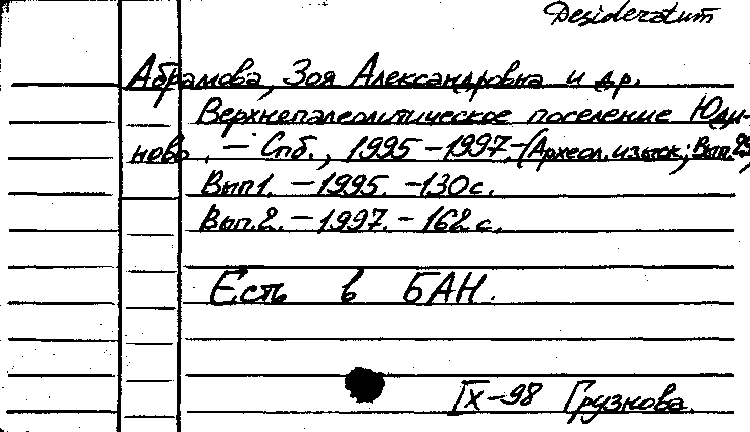 Desideratum
Абрамова, Зоя Александровна и др.
Верхнепалеолитическое поселение Юди-
ново. – Спб., 1995 – 1997. – (Археол. изыск.; Вып. 29,
Вып 1. – 1995. – 130 с.
Вып. 2. – 1997. – 162 с.
Есть в БАН.
IX–98 Грузнова.